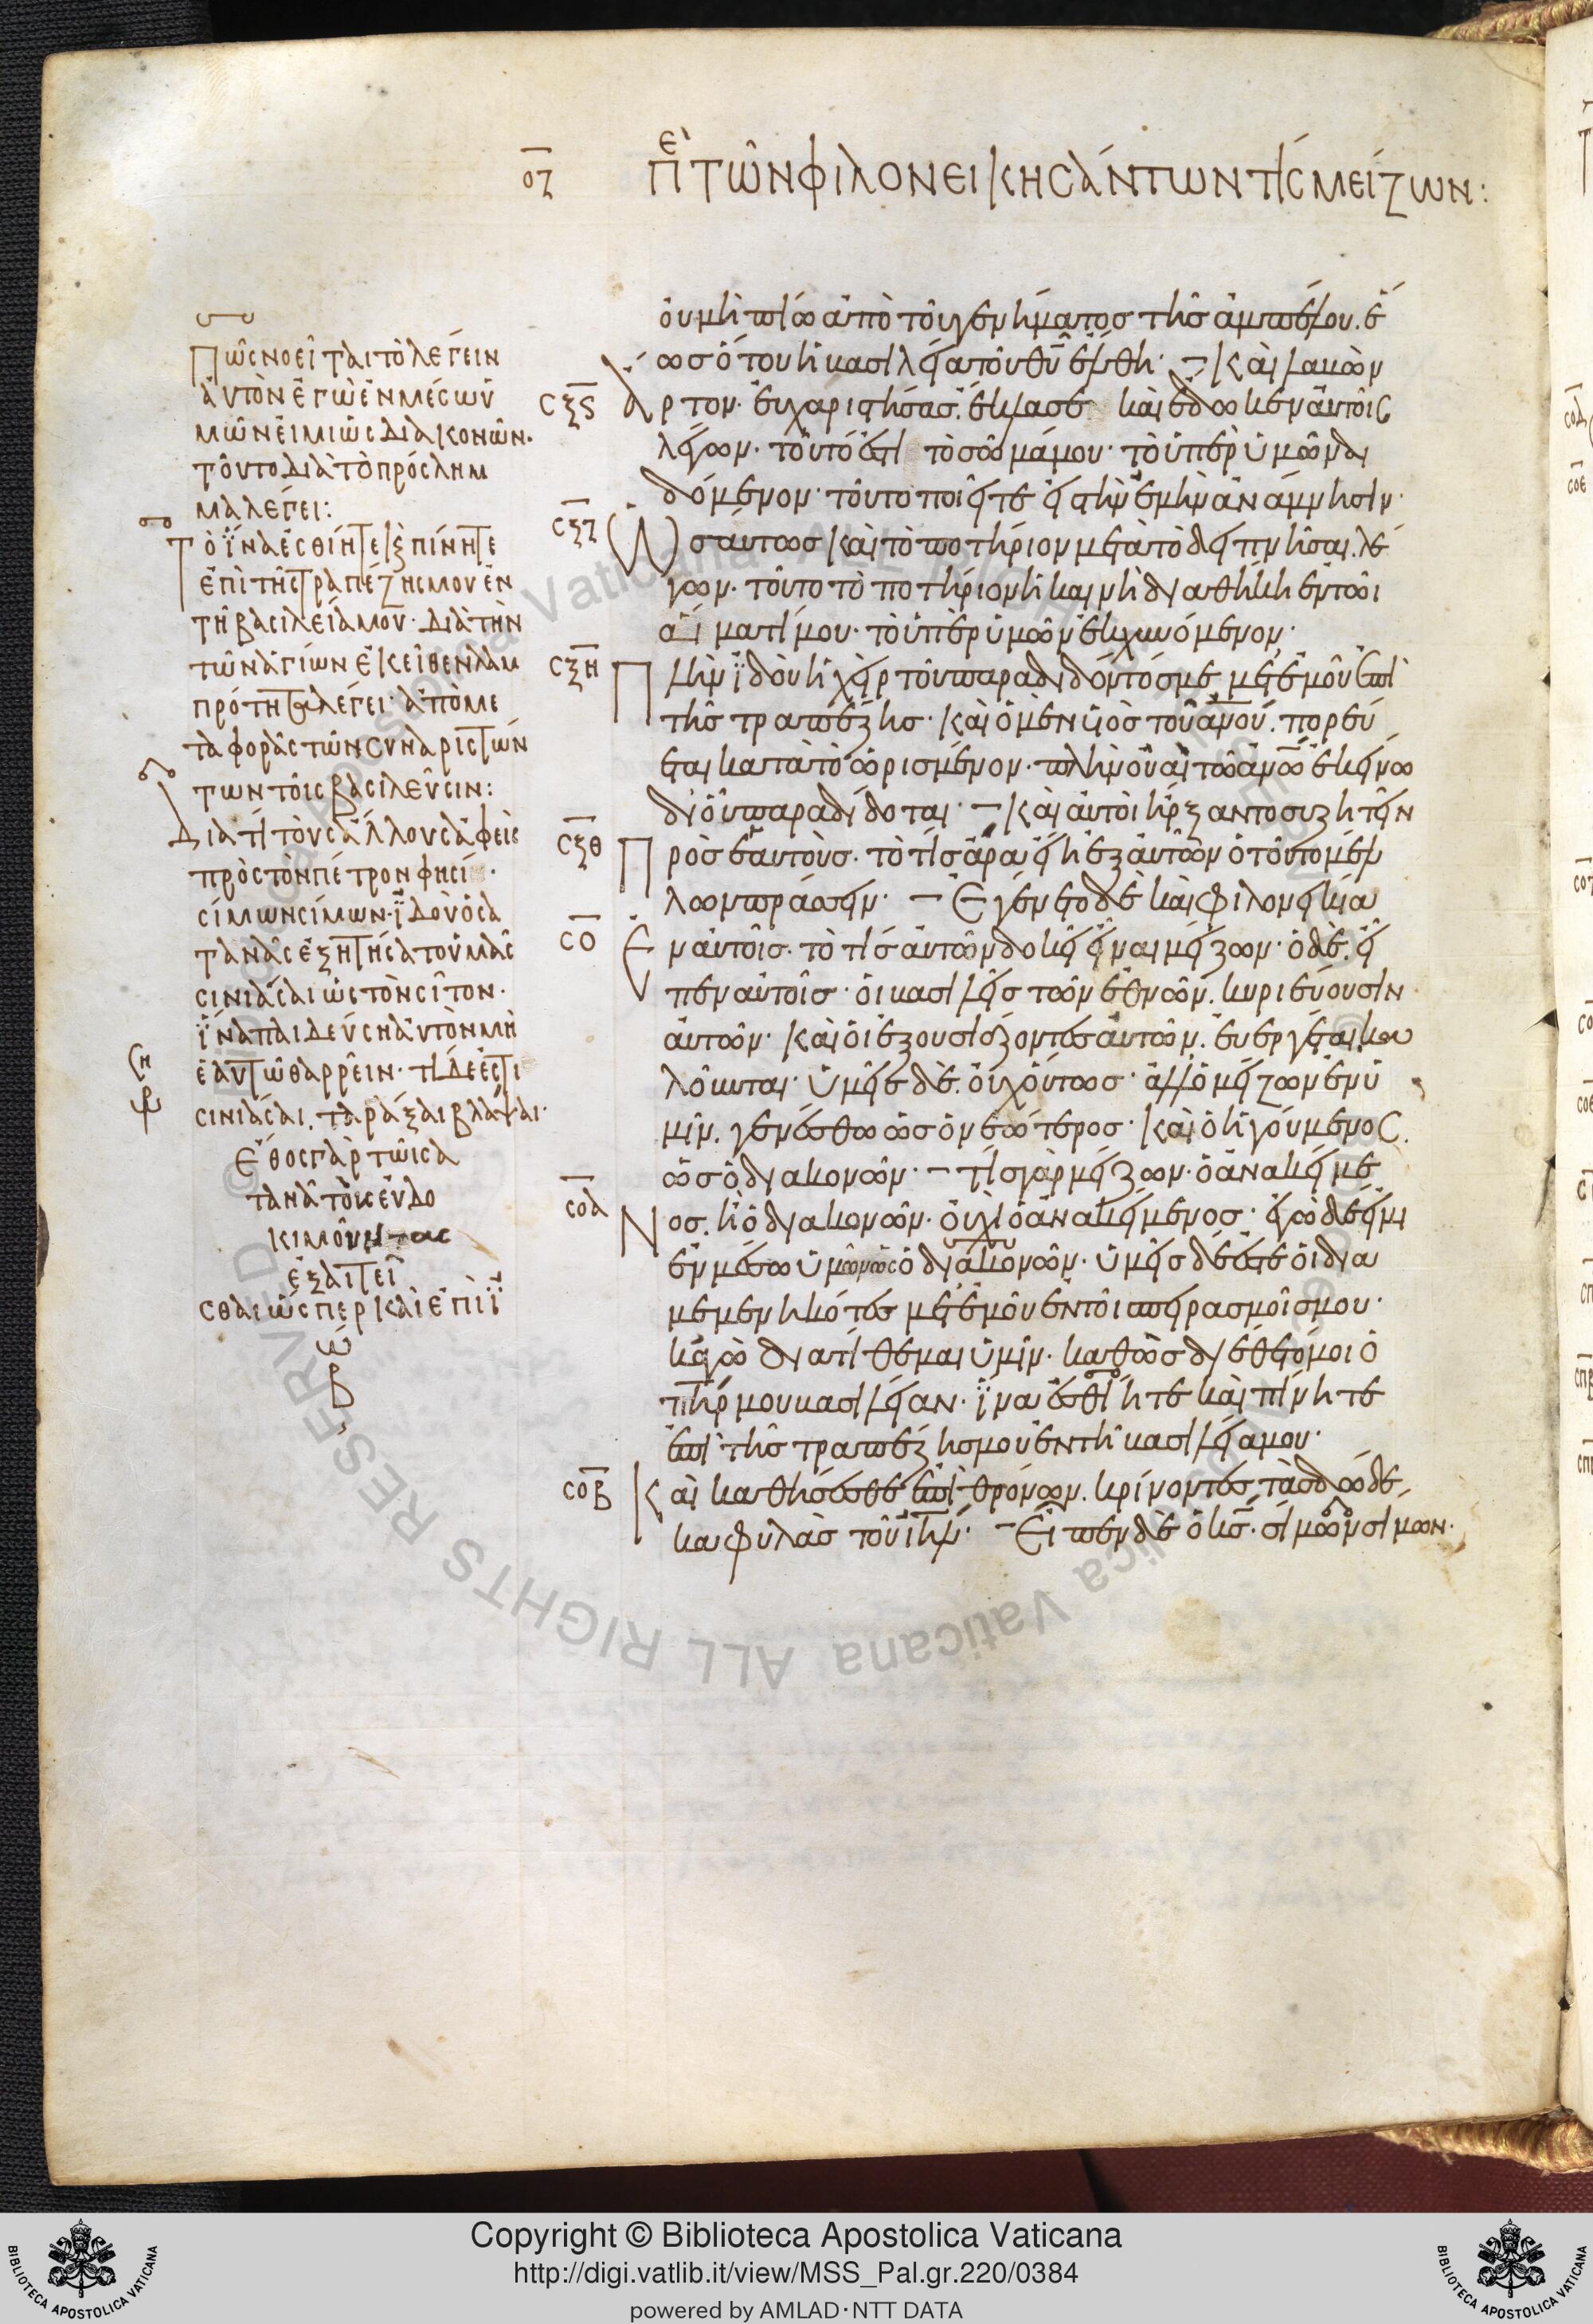 οζ πε τῶν φιλονεικησάντων τίς μείζων:
οὐ μὴ πίω ἀπὸ τοῦ γενήματος τῆς ἀμπέλου. ἕ
ως ὅτου ἡ βασιλεία τοῦ θυ ἔλθη· – Καὶ λαβὼν
σξς ἄρτον. εὐχαριστήσας. ἔκλασε καὶ ἔδωκεν αὐτοῖς
λέγων· τοῦτό ἐστι τὸ σῶμά μου· τὸ ὑπὲρ ὑμῶν δι
δόμενον· τοῦτο ποιεῖτε εἰς τὴν ἐμὴν ἀνάμνησιν·
σξζ Ὡσαύτως καὶ τὸ ποτήριον μετὰ τὸ δειπνῆσαι. λέ
γων· τοῦτο τὸ ποτήριον ἡ καινὴ διαθήκη ἐν τῶι
αἵματί μου· τὸ ὑπὲρ ὑμῶν ἐκχυνόμενον·
σξη Πλὴν ἰδοὺ ἡ χεὶρ τοῦ παραδιδόντος με μετ ἐμοῦ ἐπὶ
τῆς τραπέζης· Καὶ ὁ μὲν υἱὸς τοῦ ανου. πορεύ
εται κατὰ τὸ ὡρισμένον· πλὴν οὐαὶ τῶ ανω ἐκείνω
δι οὗ παραδίδοται· – Καὶ αὐτοὶ ἤρξαντο συζητεῖν
σξθ Πρὸς ἑαυτοὺς. τὸ τίς ἄρα εἴη ἐξ αὐτῶν ὁ τοῦτο μέλ
λων πράσσειν· – Ἐγένετο δὲ καὶ φιλονεικία
σο Ἐν αὐτοῖς. τὸ τίς αὐτῶν δοκεῖ εἶναι μείζων· ὁ δὲ. εἶ
πεν αὐτοῖς· οἱ βασιλεῖς τῶν ἐθνῶν. κυριεύουσιν
αὐτῶν· Καὶ οἱ ἐξουσιάζοντες αὐτῶν. εὐεργέται κα
λοῦνται· ὑμεῖς δὲ. οὐχ οὕτως· ἀλλ ὁ μείζων ἐν ὑ
μῖν. γενέσθω ὡς ὁ νεώτερος· Καὶ ὁ ἡγούμενος.
ὡς ὁ διακονῶν· – τίς γὰρ μείζων· ὁ ἀνακείμε
σοα Νος. ἢ ὁ διακονῶν· οὐχὶ ὁ ἀνακείμενος· ἐγὼ δέ εἰμι
ἐν μέσω ὑμῶν ὡς ὁ διακονῶν· ὑμεῖς δέ ἐστε οἱ δια
μεμενηκότες μετ ἐμοῦ ἐν τοῖς πειρασμοῖς μου·
κἀγὼ διατίθεμαι ὑμῖν. καθὼς διέθετό μοι ὁ
πηρ μου βασιλείαν· ἵνα ἐσθίητε καὶ πίνητε
ἐπὶ τῆς τραπέζης μου ἐν τῆ βασιλεία μου·
σοβ Καὶ καθήσεσθε ἐπὶ θρόνων. κρίνοντες τὰς δώδε
κα φυλὰς τοῦ ιηλ· – Εἶπεν δὲ ὁ κς· σίμων σίμων·
Πῶς νοεῖται τὸ λέγειν
αὐτὸν ἐγὼ ἐν μέσω ὑ
μῶν εἰμι ὡς διακονῶν·
τοῦτο διὰ τὸ πρόσλημ
μα λέγει:
Τὸ ἵνα ἐσθίητε κ πίνητε
ἐπὶ τῆς τραπέζης μου ἐν
τῆ βασιλεία μου· διὰ τὴν
τῶν ἁγίων ἐκεῖθεν λαμ
πρότητα λέγει· ἀπὸ με
ταφορᾶς τῶν συναριστών
των τοῖς βασιλεῦσιν:
Διατί τοὺς ἄλλους ἀφεὶς
πρὸς τὸν πέτρον φησί·
σίμων σίμων· ἰδοὺ ὁ σα
τανᾶς ἐξητήσατο ὑμᾶς
σινιάσαι ὡς τὸν σῖτον·
ἵνα παιδεύση αὐτὸν μὴ
ἑαυτῶ θαρρεῖν· τί δέ ἐστι
σινιάσαι. ταράξαι βλάψαι·
Ἔθος γὰρ τῶι σα
τανᾶ τοὺς εὐδο
κιμοῦντας
ἐξαιτεῖ
σθαι ὥσπερ καὶ ἐπὶ ἰ
ώ
β